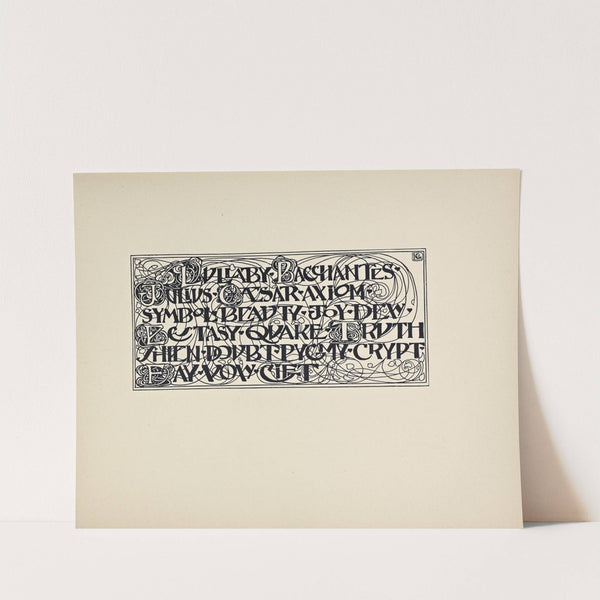 LULLABY·BACCHANTES·
JULIUS·CÆSAR·AXIOM·
SYMBOL·BEAUTY·JOY·DEW·
ECSTASY·QUAKE·TRUTH
·DOUBT·PYGMY·CRYPT·
DAY·VOW·GIFT